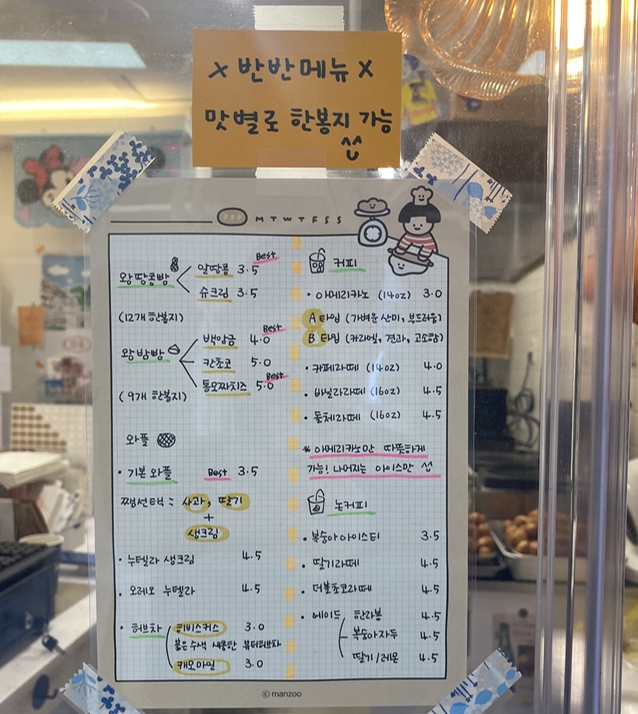 x 반반메뉴 x
맛별로 한봉지 가능
M T W T F S S
왕땅콩빵
알땅콩 3.5 Best
슈크림 3.5
(12개 한봉지)
왕밤빵
백앙금 4.0 Best
칸초코 5.0
통모짜치즈 5.0 Best
(9개 한봉지)
와플
• 기본 와플 Best 3.5
쨈선택 : 사과, 딸기
+
생크림
• 누텔라 생크림 4.5
• 오레오 누텔라 4.5
• 허브차
히비스커스 3.0
붉은 수색 새콤한 뷰티허브차
캐모마일 3.0
커피
• 아메리카노 (14oz) 3.0
A 타입 (가벼운 산미, 부드러움)
B 타입 (카라멜, 견과, 고소함)
• 카페라떼 (14oz) 4.0
• 바닐라라떼 (16oz) 4.5
• 돌체라떼 (16oz) 4.5
* 아메리카노만 따뜻하게
가능! 나머지는 아이스만
논커피
• 복숭아아이스티 3.5
• 딸기라떼 4.5
• 더블초코라떼 4.5
• 에이드 한라봉 4.5
복숭아자두 4.5
딸기/레몬 4.5
© manzoo